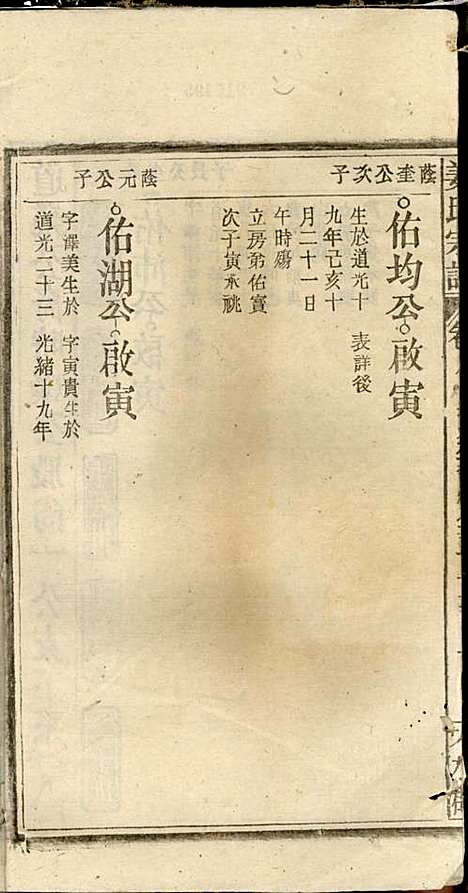 姜氏宗譜
蔭奎公次子
佑均公 啟寅
生於道光十 表詳後
九年己亥十
月二十一日
午時殤
立房弟佑賓
次子寅承祧
蔭元公子
佑湖公 啟寅
字譯美生於 字寅貴生於
道光二十三 光緒十九年